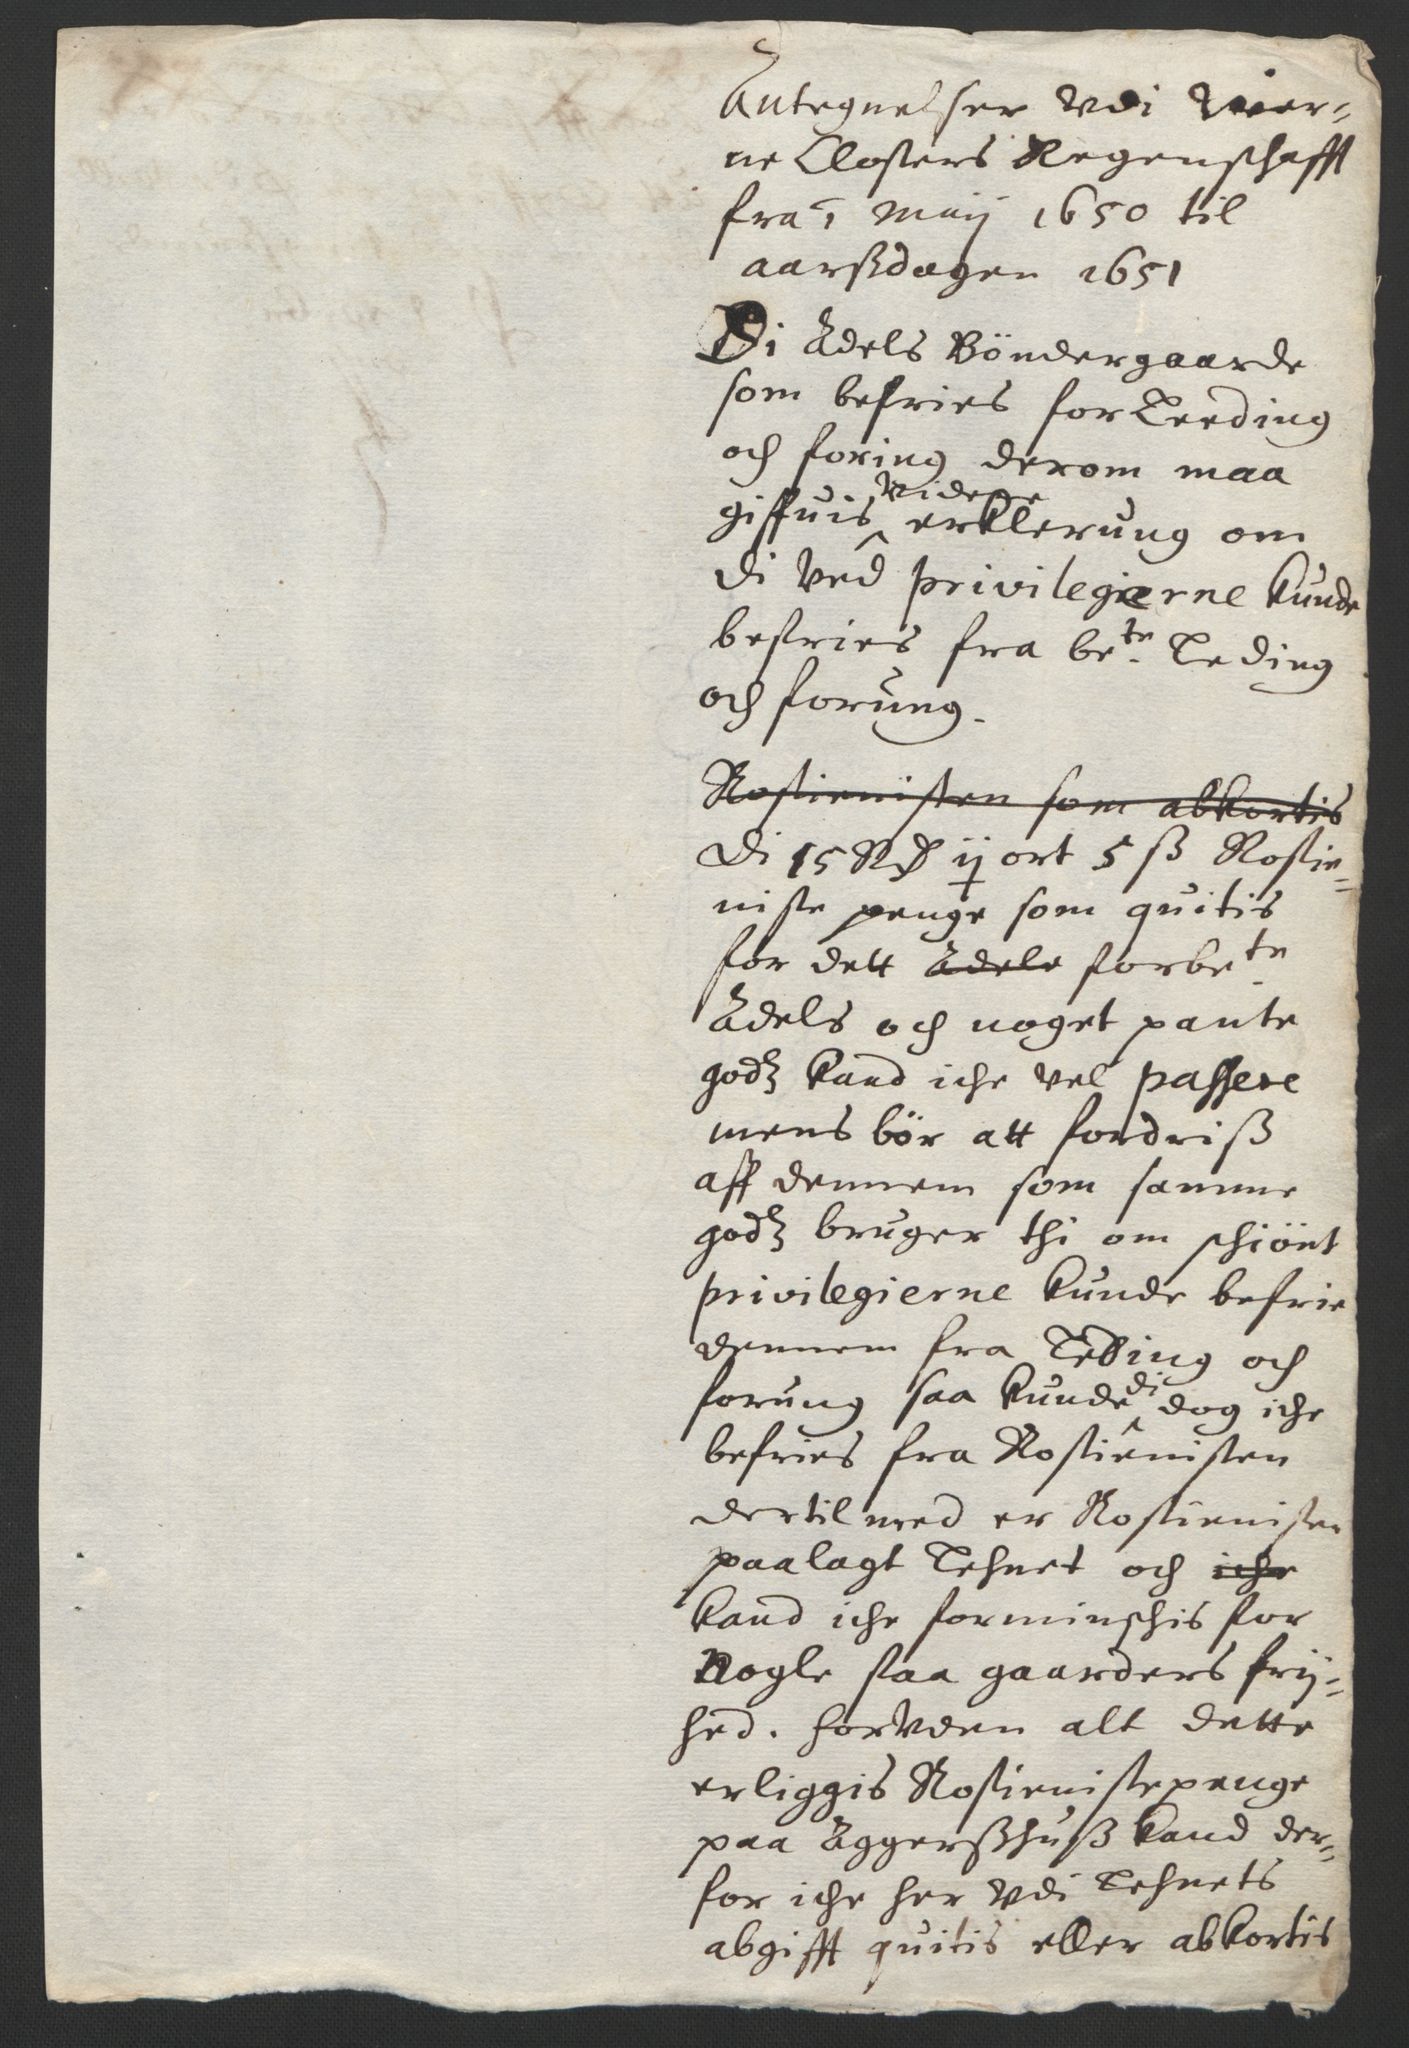 Antegnelser Vdi Wer-
ne Closters Regenschafft
fra 1 Maij 1650 til
aarßdagen 1651
Di Adels Böndergaarde
som befries for Leeding
och foring derom maa
giffuis videre erklerung om
di ved privilegierne kunde
befries fra bete. Leding
och forung.
Rostienisten som abkortis
Di 15 Rd ij ort 5 ß Rostie-
niste penge som quitis
for dett Adele forbete.
Adels och noget pante
godz kand iche vel passere
mens bör att fordriß
aff dennem som samme
godz bruger thi om schiönt
privilegierne kunde befrie
dennem fra Leding och
forung saa kunde di dog iche
befries fra Rostienisten
dertilmed er Rostienisten
paalagt Lehnet och iche
kand iche forminschis for
Nogle faa gaarders frij-
hed. forvden alt dette
erliggis Rostienistepenge
paa Aggerßhuß kand der-
for iche her Vdi Lehnets
abgifft quitis eller abkortis